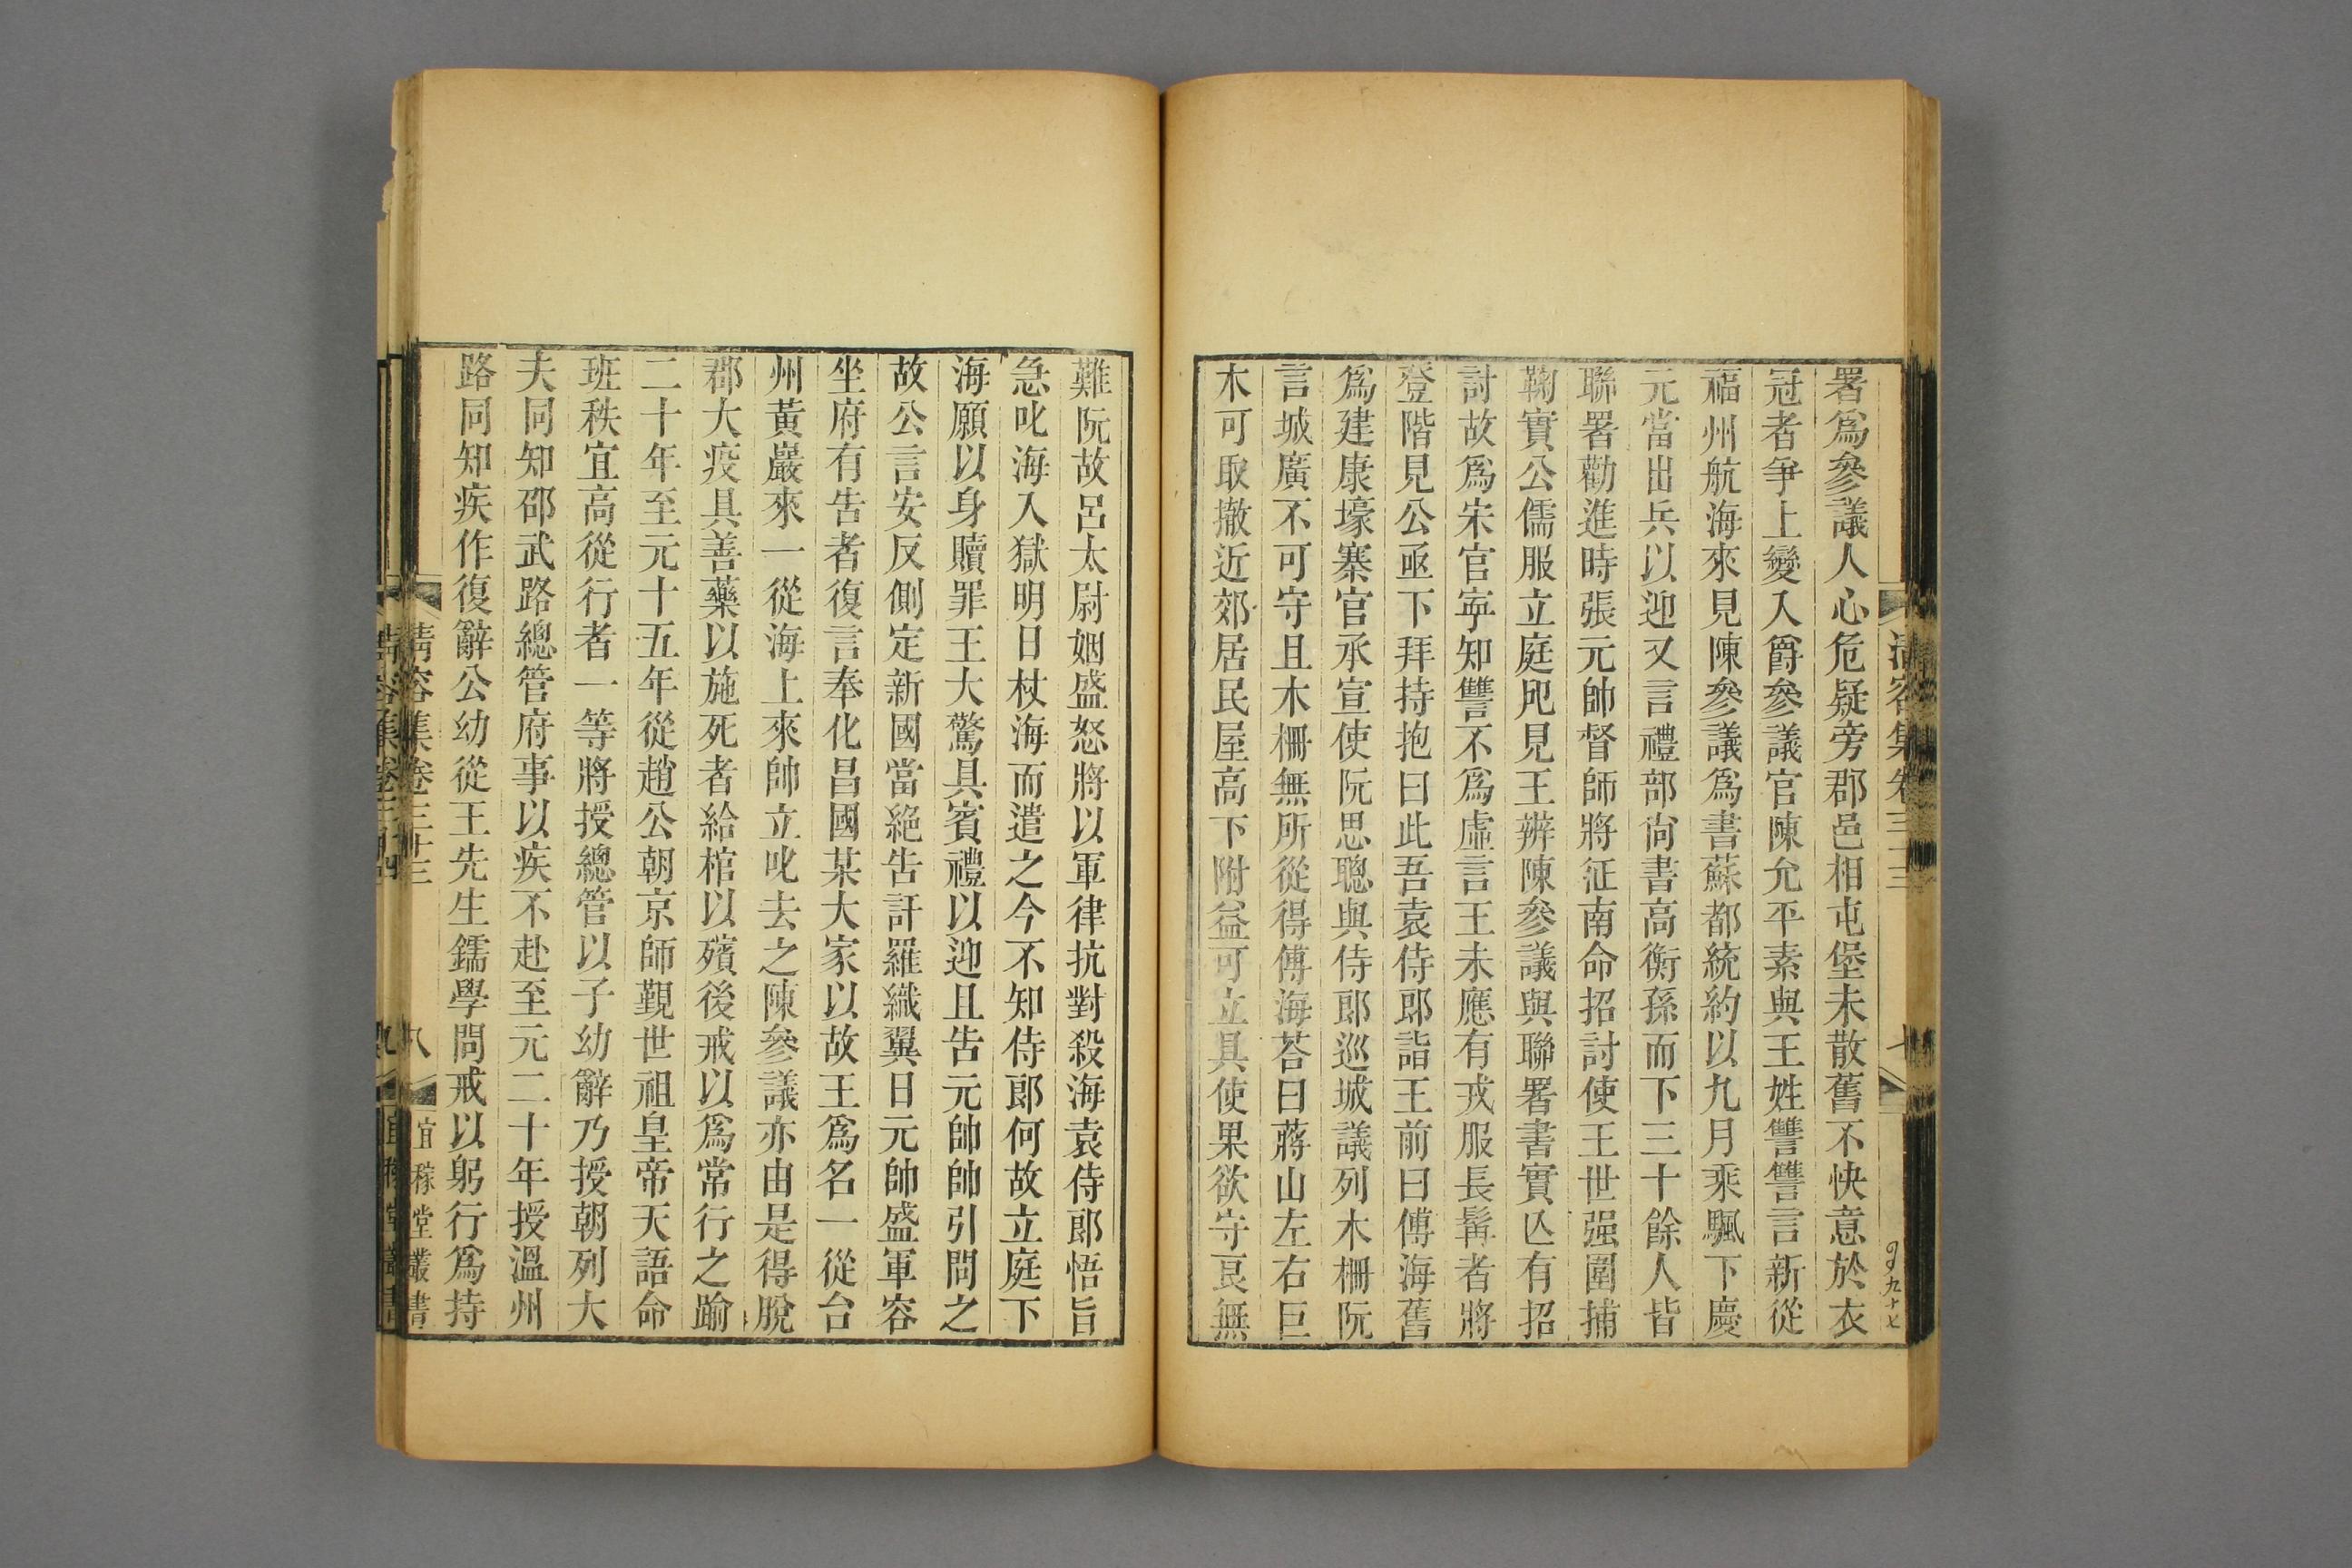 清容集卷三十三
七
九十七
署爲參議人心危疑旁郡邑相屯堡未散舊不快意於衣
冠者爭上變入爵參議官陳允平素與王姓讐讐言新從
福州航海來見陳參議爲書蘇都統約以九月乘颿下慶
元當出兵以迎又言禮部尚書高衡孫而下三十餘人皆
聯署勸進時張元帥督師將征南命招討使王世强圍捕
鞠實公儒服立庭戺見王辨陳參議與聯署書實亾有招
討故爲宋官寧知讐不爲虛言王未應有戎服長髯者將
登階見公亟下拜持抱曰此吾袁侍郎詣王前曰傅海舊
爲建康壕寨官承宣使阮思聰與侍郎巡城議列木柵阮
言城廣不可守且木柵無所從得傅海荅曰蔣山左右巨
木可取撤近郊居民屋高下附益可立具使果欲守良無
難阮故呂太尉姻盛怒將以軍律抗對殺海袁侍郎悟旨
急叱海入獄明日杖海而遣之今不知侍郎何故立庭下
海願以身贖罪王大驚具賓禮以迎且告元帥帥引問之
故公言安反側定新國當絶告訐羅織翼日元帥盛軍容
坐府有告者復言奉化昌國某大家以故王爲名一從台
州黃巖來一從海上來帥立叱去之陳參議亦由是得脫
郡大疫具善藥以施死者給棺以殯後戒以爲常行之踰
二十年至元十五年從趙公朝京師覲世祖皇帝天語命
班秩宜高從行者一等將授總管以子幼辭乃授朝列大
夫同知邵武路總管府事以疾不赴至元二十年授溫州
路同知疾作復辭公幼從王先生鑐學問戒以躬行爲持
清容集卷三十三
八
宜稼堂叢書
清容集卷三十四
九
宜稼堂叢書